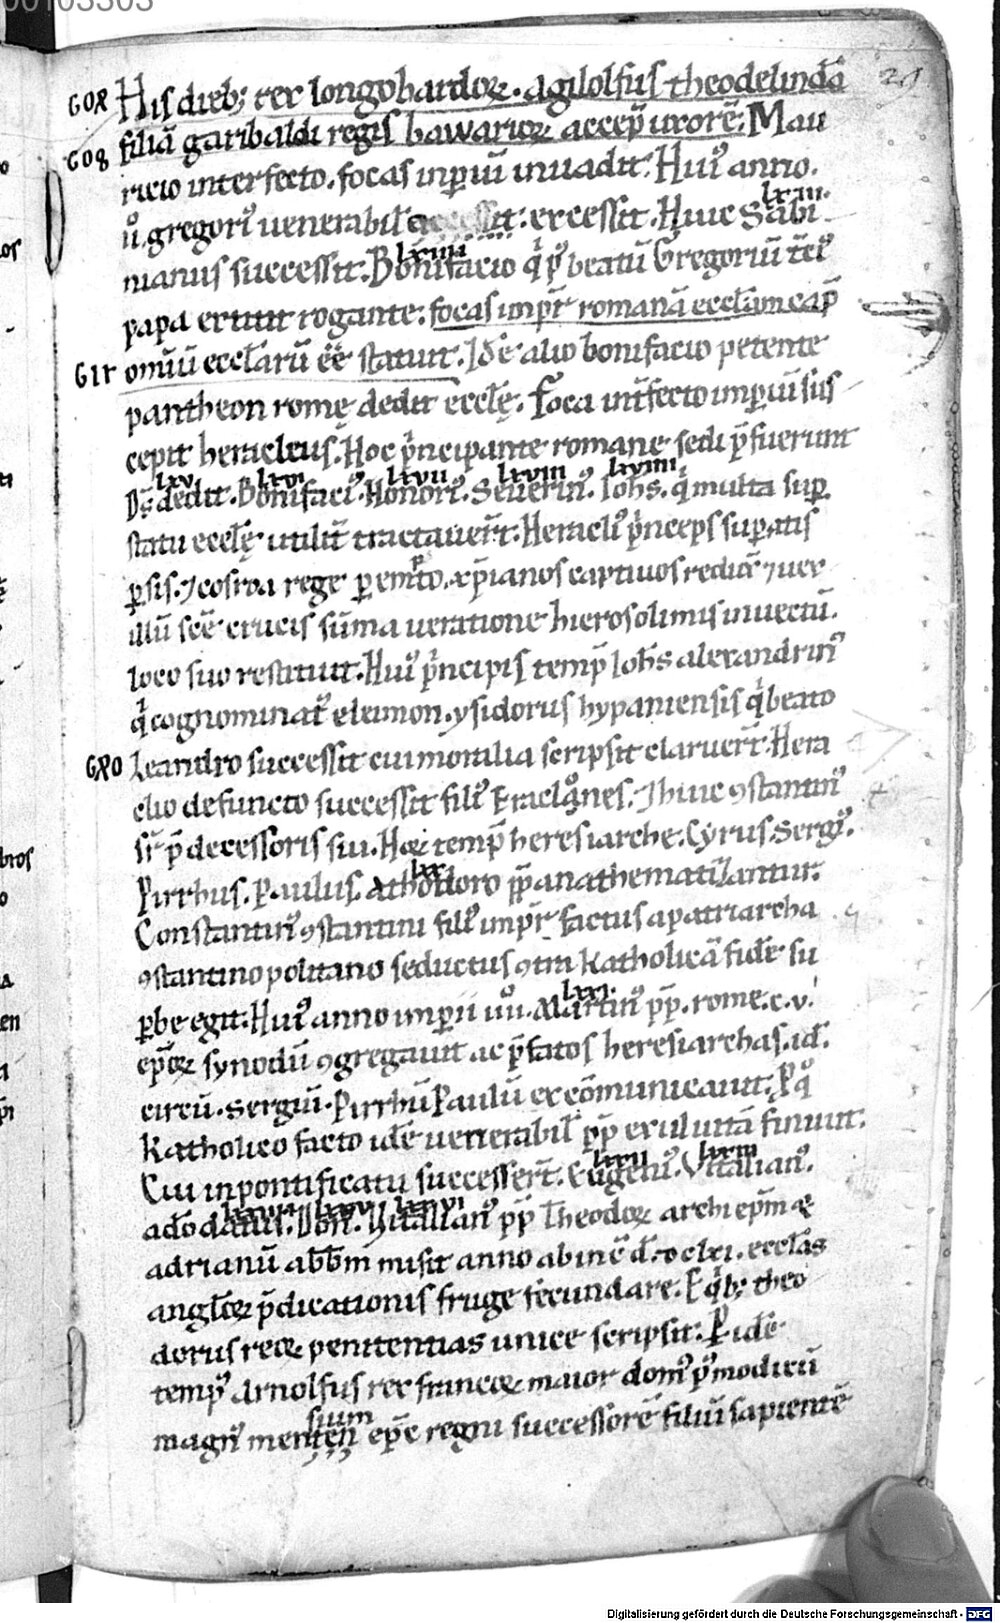 00103303
29
608 Hisdieb; rex longobardoꝝ. agilolfus theodelindā
609 filiā garibaldi regis bawarioꝝ accep̄ uxorē. Mau
ricio interfecto. focas inꝑiū inuadit. Huiꝰ anno.
ū. gregoriꝰ uenerabil̄ excessit. Huic Sabi
lxiii.
nianus successit. Bonifacio q̇ p̄ beatū Gregoriū t̄ciꝰ
lxiiii
papa extitit rogante. focas imp̄r romanā eccl̄am cap̄
611 omīū eccl̄arū ēē statuit. Idē alio bonifacio petente
pantheon romę dedit eccl̄ę. Foca int̄fecto imꝑiū sus
cepit heraclius. Hoc p̄ncipante romane sedi p̄fuerunt
lxv lxvi lxvii lxviii lxviiii
D̄s dedit. Bonifaciꝰ. Honoriꝰ. Seuerinꝰ. Ioh̄s. q̇ multa suꝑ
statu eccl̄ę utilit̄ tractauer̄t. Heracliꝰ p̄nceps suꝑatis
ꝑsis. ⁊ cosroa rege ꝑempto. xp̄ianos captiuos reduc̄ ⁊ uex
illū sc̄ē crucis sūma ueratione hierosolimis inuectū.
loco suo restituit. Huiꝰ p̄ncipis temp̄ Ioh̄s alexandrinꝰ
q̇ cognominat̄ eleimon. ysidorus hypaniensis q̇ beato
680 Leandro successit cui moralia scripsit claruer̄t. Hera
clio defuncto successit filiꝰ Eracleones. ⁊ huic ꝯstantinꝰ
fr̄ p̄decessoris sui. Hoꝝ temp̄ heresiarche. Cyrus. Sergiꝰ.
Pirrhus. Paulus. a theodoro p̄p̄ anathematizantur.
lxx
Constantinꝰ ꝯstantini filiꝰ imp̄r factus a patriarcha
ꝯstantinopolitano seductus ꝯtra katholicā fidē su
ꝑbe egit. Huiꝰ anno imꝑii uiiiꝰ. Martinꝰ p̄p̄. rome. c. v.
lxxi.
ep̄oꝝ synodū ꝯgregauit ac p̄fatos heresiarchas. id̄.
cirū. Sergiū. Pirrhū Paulū excōmunicauit. Pꝰq̇
katholico facto idē uenerabil̄ p̄p̄ exul uitā finiuit.
Cui in pontificatu successer̄t. Eugeniꝰ. Vitalianꝰ.
lxxii lxxiii
adōdatus. Don. Vitalianꝰ p̄p̄ Theodoꝝ archiep̄m ⁊
adrianū abb̄m misit anno ab inc̄ d̄. dclxi. eccl̄as
angl̄oꝝ p̄dicationis fruge fecundare. E q̇b; theo
dorus reoꝝ penitentias unice scripsit. P idē
tempꝰ Arnolfus rex francoꝝ maior domꝰ pꝰmodicū
magn̄ ep̄e regni successorē filiū sapientē
Digitalisierung gefördert durch die Deutsche Forschungsgemeinschaft - DFG